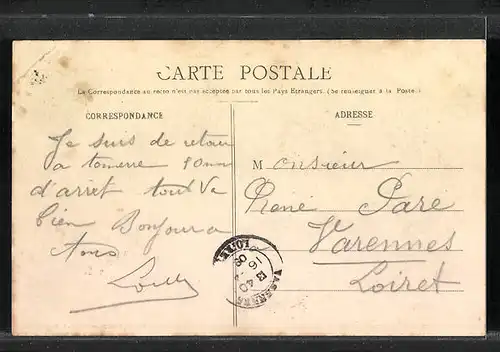 CARTE POSTALE
La Correspondance au recto n'est pas acceptée par tous les Pays Etrangers. (Se renseigner à la Poste.)
CORRESPONDANCE
Je suis de retour
a tonnerre 50mn
d'arret tout Va
bien Bonjour a
tous
ADRESSE
Monsieur
René Paré
Varennes
Loiret
VARENNES
LOIRET